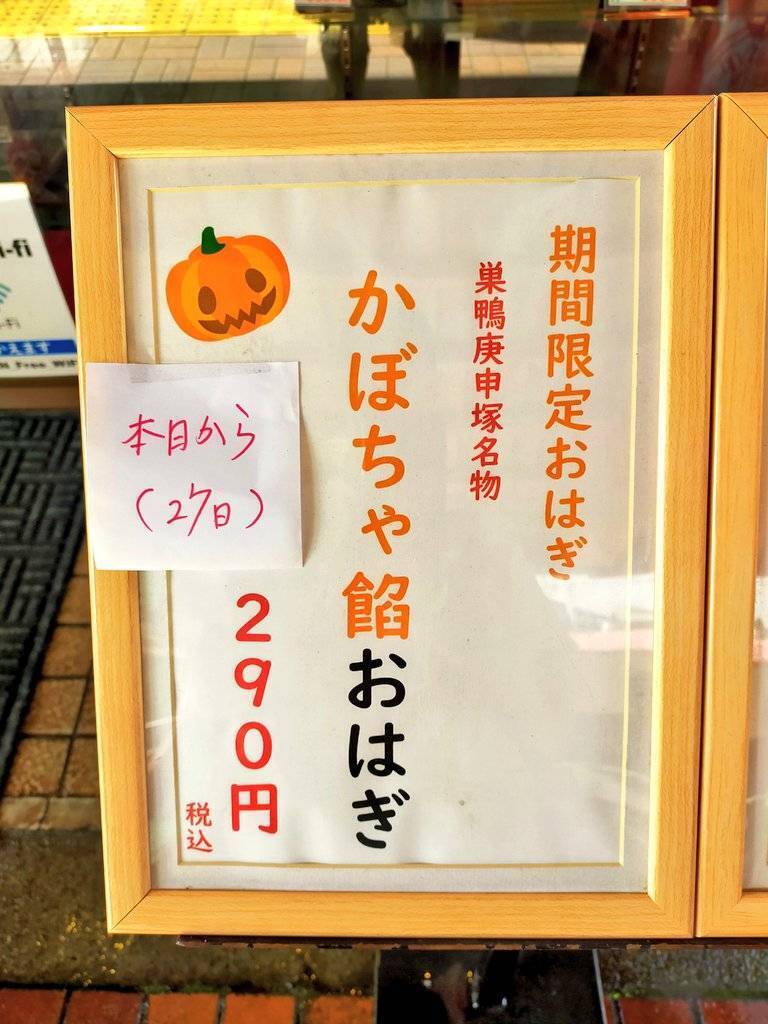 期間限定おはぎ
巣鴨庚申塚名物
かぼちゃ餡おはぎ
290円
税込
本日から
（27日）
i-fi
-Fi
Free Wi-F